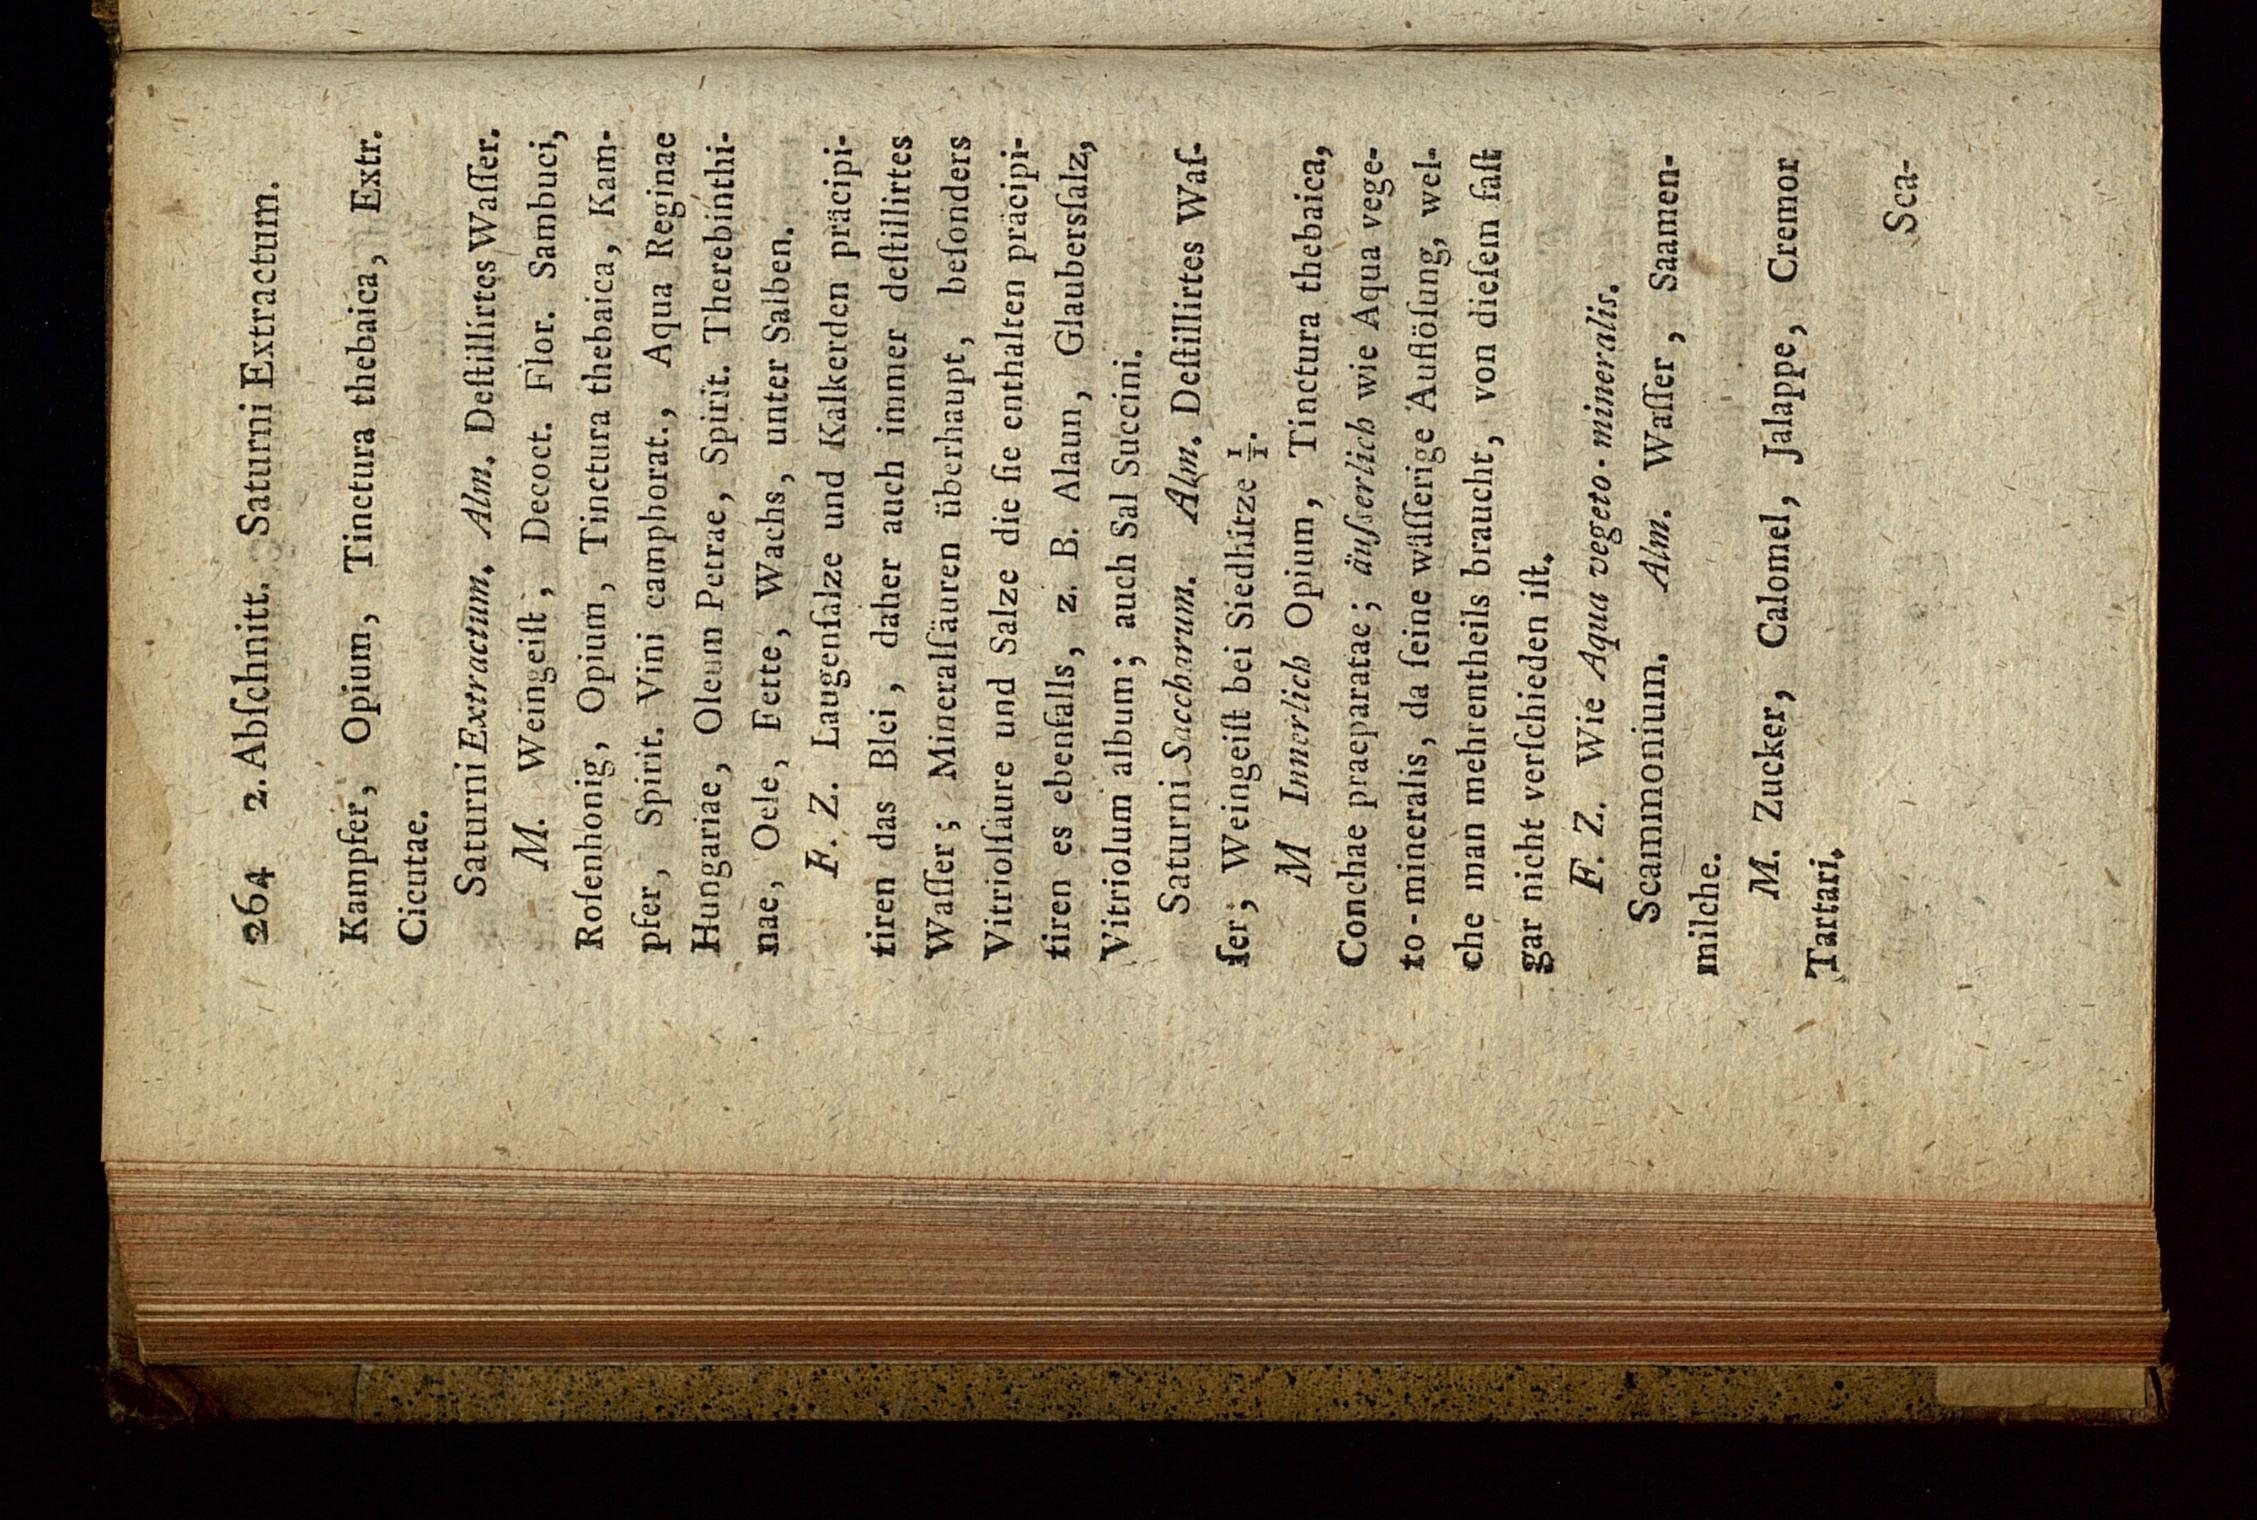 264 2. Abſchnitt. Saturni Extractum.
Kampfer, Opium, Tinctura thebaica, Extr.
Cicutae.
Saturni Extractum. Alm. Deſtillirtes Waſſer.
M. Weingeiſt, Decoct. Flor. Sambuci,
Roſenhonig, Opium, Tinctura thebaica, Kam-
pfer, Spirit. Vini camphorat., Aqua Reginae
Hungariae, Oleum Petrae, Spirit. Therebinthi-
nae, Oele, Fette, Wachs, unter Salben.
F. Z. Laugenſalze und Kalkerden präcipi-
tiren das Blei, daher auch immer deſtillirtes
Waſſer; Mineralſäuren überhaupt, beſonders
Vitriolſäure und Salze die ſie enthalten präcipi-
tiren es ebenfalls, z. B. Alaun, Glauberſalz,
Vitriolum album; auch Sal Succini.
Saturni Saccharum. Alm. Deſtillirtes Waſ-
ſer; Weingeiſt bei Siedhitze 1/1.
M Innerlich Opium, Tinctura thebaica,
Conchae praeparatae; äuſserlich wie Aqua vege-
to-mineralis, da ſeine wäſſerige Auflöſung, wel-
che man mehrentheils braucht, von dieſem faſt
gar nicht verſchieden iſt.
F. Z. Wie Aqua vegeto-mineralis.
Scammonium. Alm. Waſſer, Saamen-
milche.
M. Zucker, Calomel, Jalappe, Cremor
Tartari.
Sca-